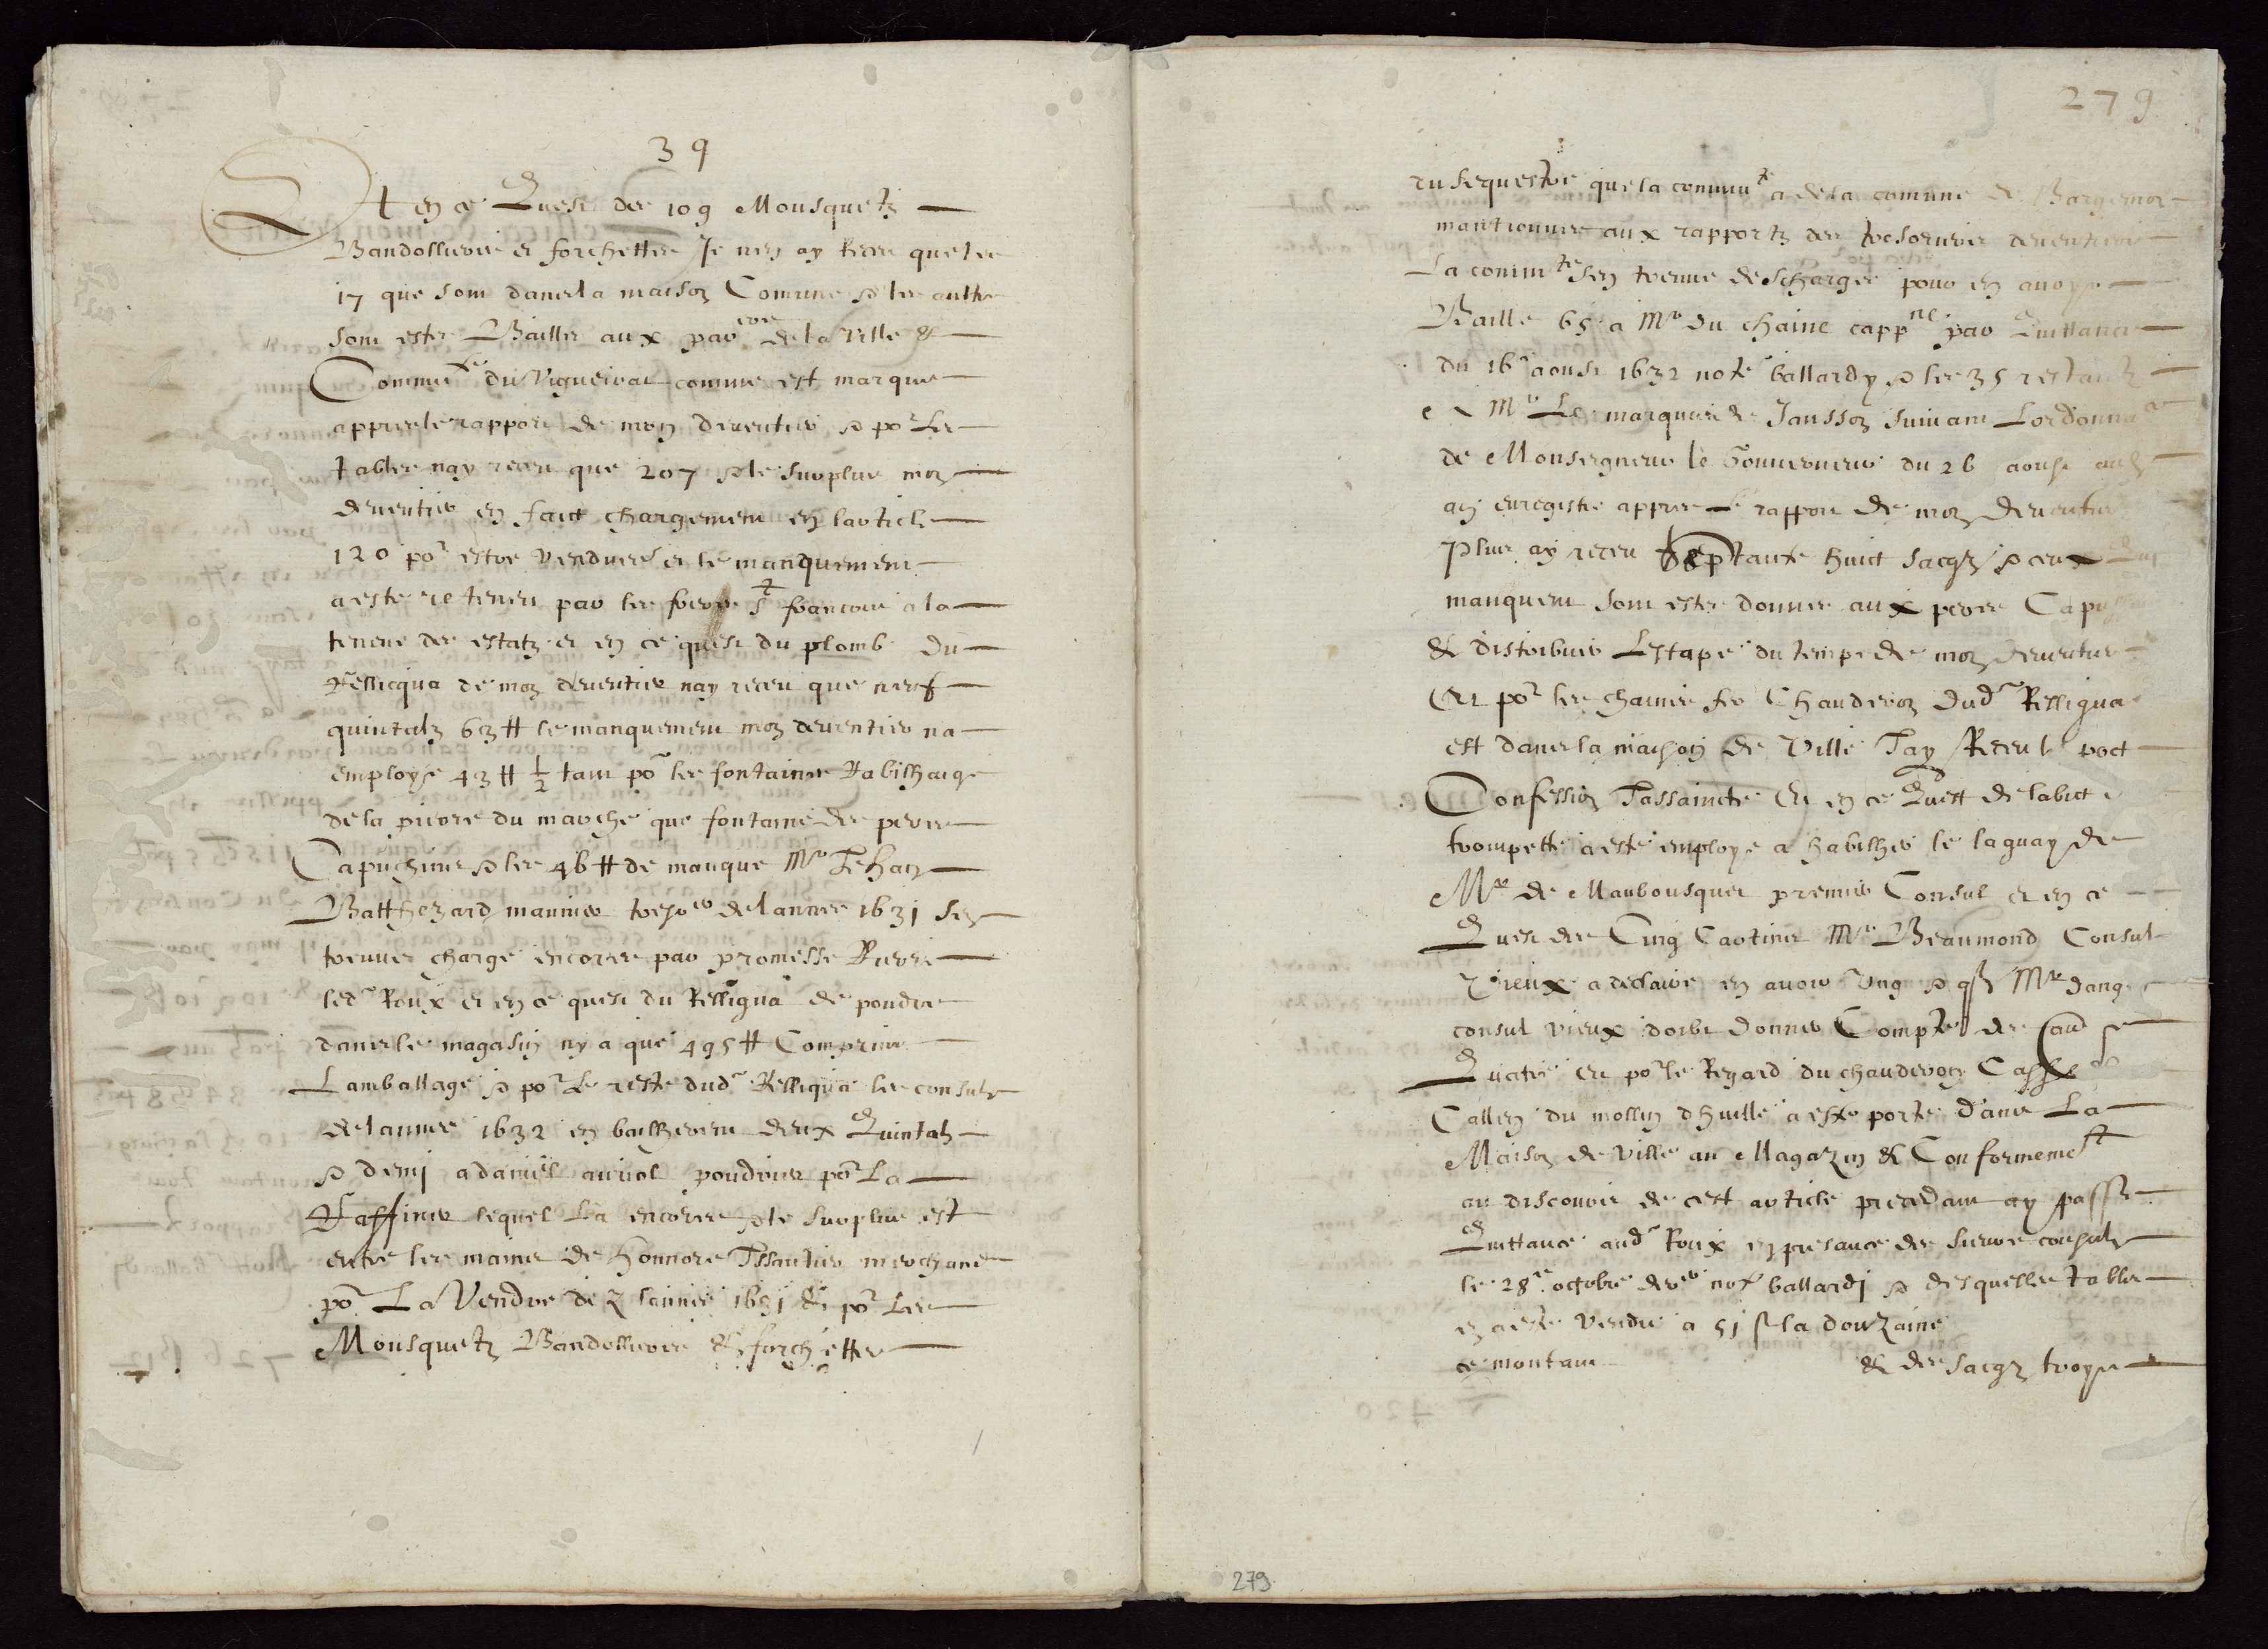 39
Et en ce Quest des 109 Mousquetz
Bandollieres et forchettes Je nen ay receu que les
17 que sont dans la maison Comune & les aultres
sont estes Bailles aux par res de la ville &
Commu tes du Vigueirat comme est marque
appres le rapport de mon deventier & por Les
tables nay receu que 207 & le surplus mon
deventier en faict chargement en larticle
120 por estre vendues et le manquement
a este reteneu par les freres st francois a la
teneue des estatz et en ce quest du plomb du
Relliqua de mon deventier nay receu que neuf
quintalz 63 # le manquement mon deventier na
employe 43 # 1/2 tant por les fontaines Rabilhaige
de la pierre du marche que fontaine des peres
Capuchins & les 46 # de manque Mr Jehan
Balthezard maunier tresor de lannee 1631 sen
treuve charge encores par promesse Rierre
led. Roux et en ce quest du Relliqua de poudre
dans le magasin ny a que 495 # Comprins
Lamballage & por Le reste dud. Relliqua les consulz
de lannee 1632 en bailherent deux Quintalz
& demj a daniel auriol poudrier por La
Raffiner lequel La encores & le surplus est
entre les mains de honnore Issautier merchand
por La Vendre dez lannee 1631 Et por Les
Mousquetz Bandollieres & forchettes
279
du sequestre que la commu te a de la comune de Bargemon
mantionnes aux rapportz des tresoriers deventiers
La commu te sen treuve descharger pour en avoyr
Baille 65 a Mr du chaine cappne par Quittance
du 16 aoust 1632 note ballardy & les 35 restantz
a Mr Le marquis de Janson suivant Lordonnance
de Monseigneur le Gouverneur du 26 aoust aud.
an enregistre appres Le rapport de mon deventier
Plus ay receu Septante huict sacqz & ceux Qui
manquent sont estes donnes aux peres Capussins
& distribuer Lestape du temps de mon deventier
Et por les chaines fer Chauderon dud. Relliqua
est dans la maison de ville Jay Receu le poct
Confession Tassaincte Et en ce Quest de labict
trompette a este employe a habilher le laguay de
Mr de Maubousquet premier Consul et en ce
Quest des Cinq Cartines Mr Beaumond Consul
Vieux a declaire en avoir Ung & qz Mr dang
consul vieux doibt donner Compte des
Quatre Et por le Regard du chauderon Casse
Callen du mollin dhuille a este porte dans La
Maison de ville au Magazin & Conformement
au discouvre de cest article precedant ay passe
Quittance aud. Roux en presance des sieurs consulz
le 28e octobre not ballardj & desquelles tables
en a este vendu a 51 s la douzaine
ce montant & des sacqz troys
279